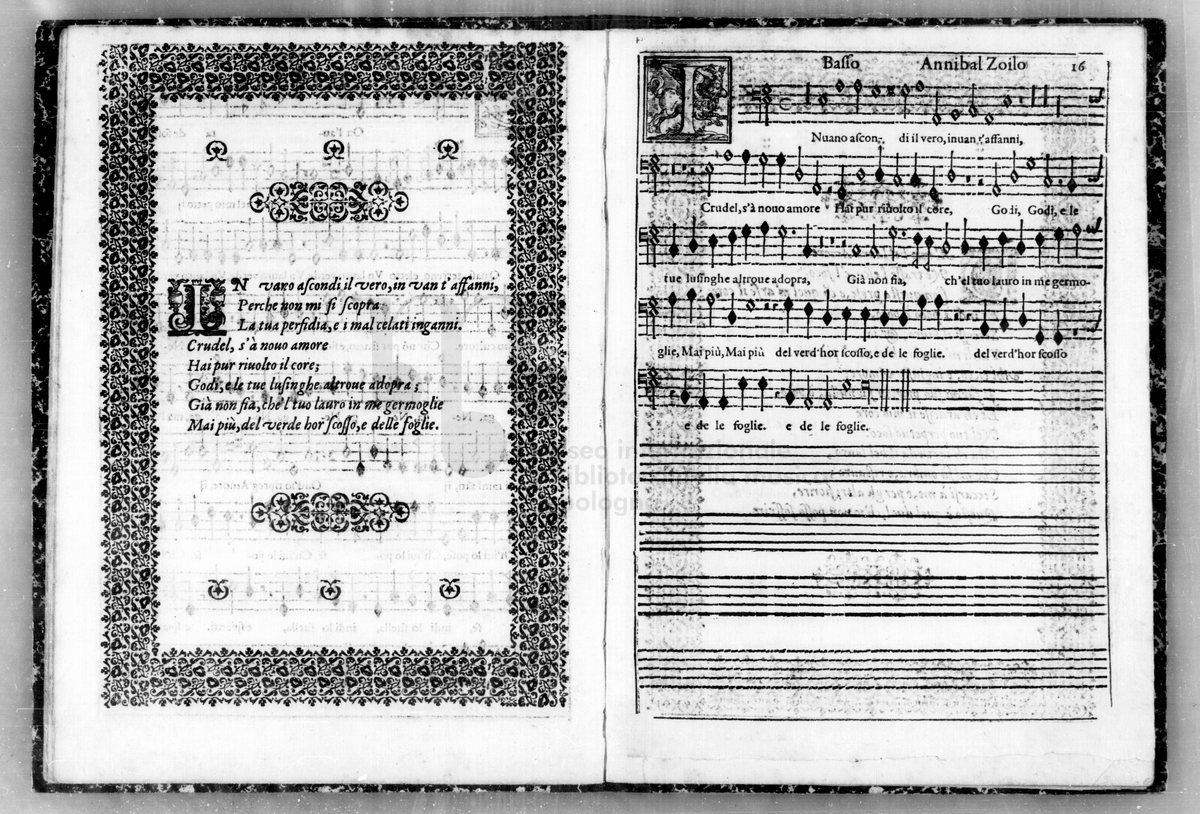 IN vano ascondi il vero, in van t'affanni,
Perche non mi si scopra
La tua perfidia, e i mal celati inganni.
Crudel, s'à nouo amore
Hai pur riuolto il core;
Godi, e le tue lusinghe altroue adopra;
Già non fia, che'l tuo lauro in me germoglie
Mai più, del verde hor scosso, e delle foglie.
Basso Annibal Zoilo 16
INuano ascon- di il vero, inuan t'affanni,
Crudel, s'à nouo amore Hai pur riuolto il core, Godi, Godi, e le
tue lusinghe altroue adopra, Già non fia, ch'el tuo lauro in me germo-
glie, Mai più, Mai più del verd'hor scosso, e de le foglie. del verd'hor scosso
e de le foglie. e de le foglie.